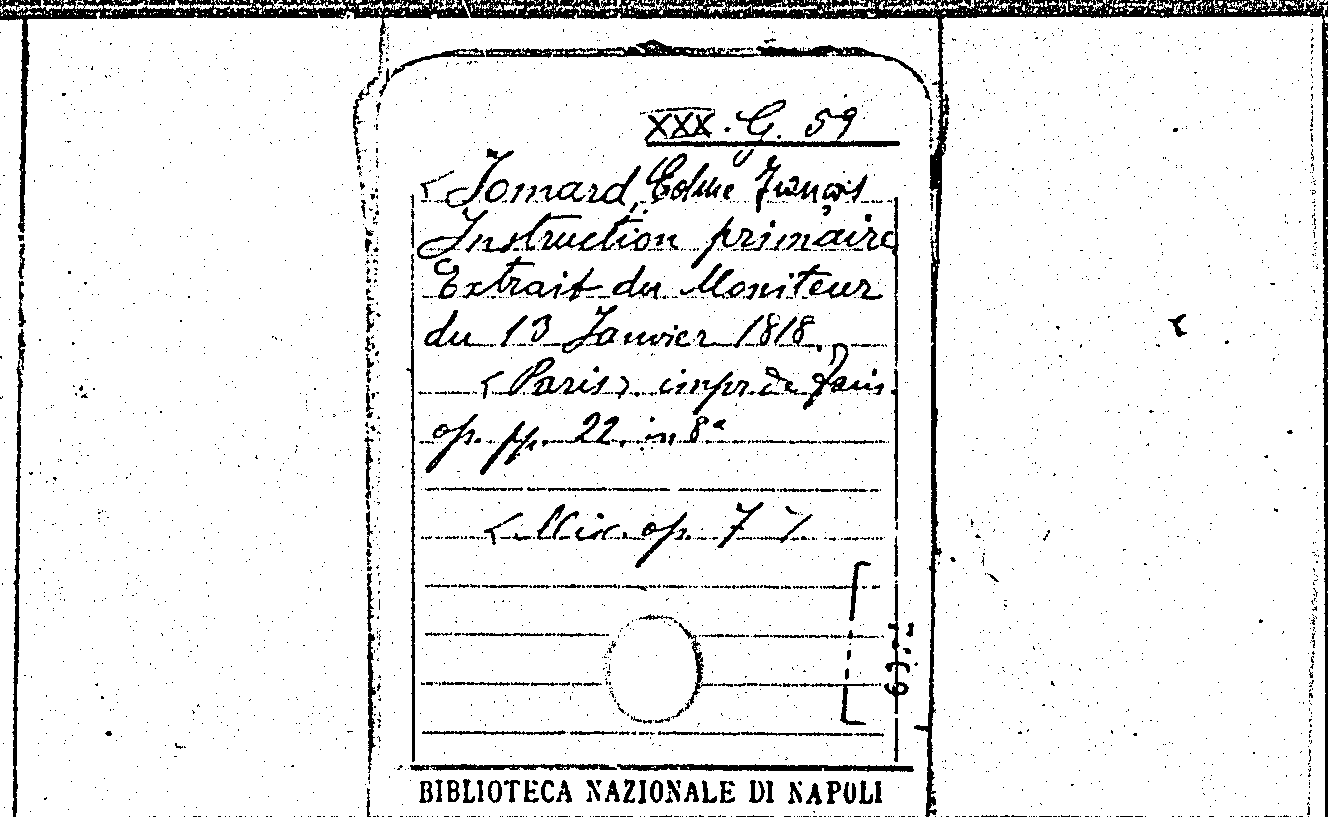 XXX. G. 59
<Jomard, Edme François
Instruction primaire
Extrait du Moniteur
du 13 Janvier 1818.
<Paris>. impr. de
op. pp. 22. in 8°
<Mix. op. 77
BIBLIOTECA NAZIONALE DI NAPOLI